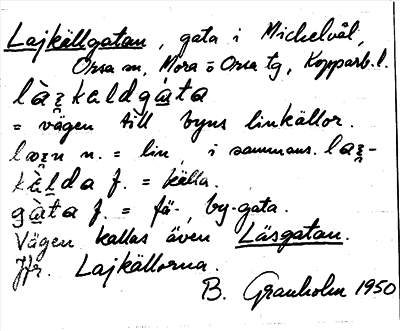 Lajkällgatan, gata i Michelvål,
Orsa sn, Mora o Orsa tg, Kopparb. l.
= vägen till byns linkällor.
n. = lin, i sammans.
f. = källa.
f. = fä-, by-gata.
Vägen kallas även Läsgatan.
Jfr. Lajkällorna.
B. Granholm 1950